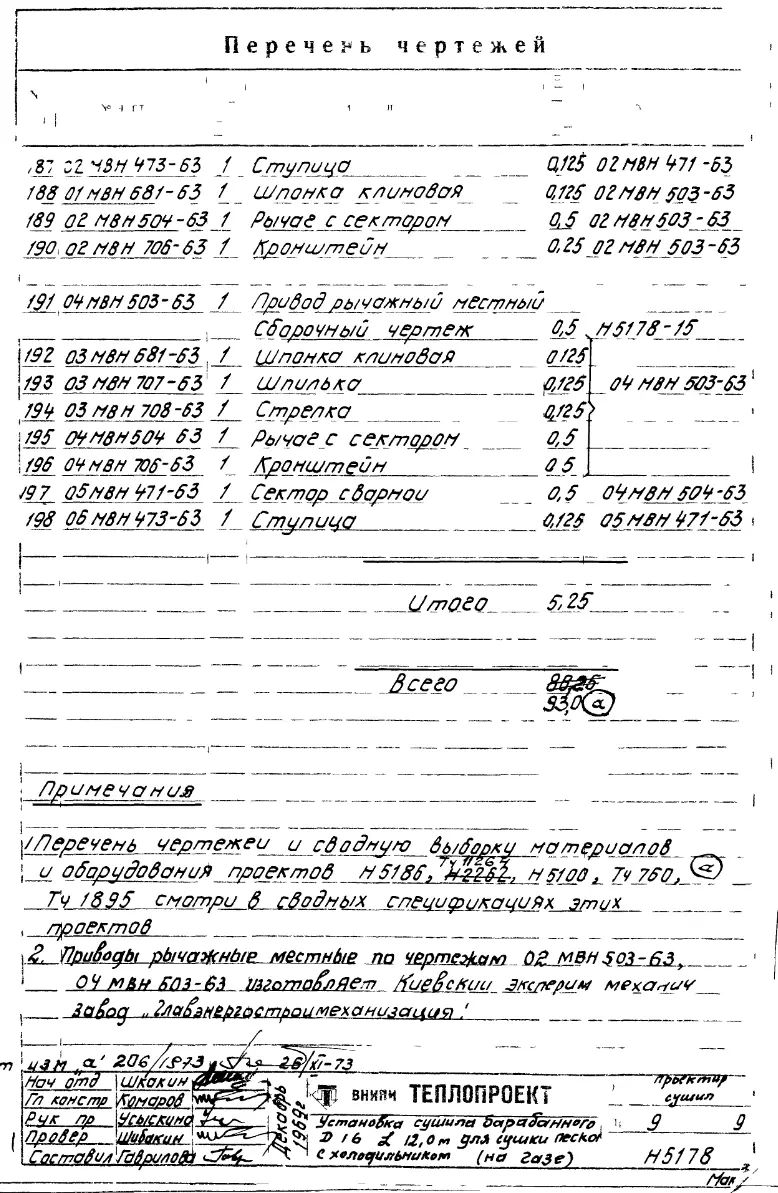 Перечень чертежей
187 02 МВН 473-63 1 Ступица 0,125 02 МВН 471-63
188 01 МВН 681-63 1 Шпонка клиновая 0,125 02 МВН 503-63
189 02 МВН 504-63 1 Рычаг с сектором 0,5 02 МВН 503-63
190 02 МВН 706-63 1 Кронштейн 0.25 02 МВН 503-63
191 04 МВН 503-63 1 Привод рычажный местный
Сборочный чертеж 0,5 Н5178-15
192 03 МВН 681-63 1 Шпонка клиновая 0125
193 03 МВН 707-63 1 Шпилька 0,125 04 МВН 503-63
194 03 МВН 708-63 1 Стрелка 0,125
195 04 МВН 504 63 1 Рычаг с сектором 0,5
196 04 МВН 706-63 1 Кронштейн 0 5
197 05 МВН 471-63 1 Сектор сварной 0,5 04 МВН 504-63
198 06 МВН 473-63 1 Ступица 0,125 05 МВН 471-63
Итого 5,25
Всего 88,25
93,0 а
Примечания
1 Перечень чертежей и сводную выборку материалов
ТЧ 11267
и оборудования проектов Н5186, Н2262, Н5100, ТЧ 760, а
ТЧ 1895 смотри в сводных спецификациях этих
проектов
2. Приводы рычажные местные по чертежам 02 МВН 503-63,
04 МВН 503-63 изготовляет Киевский эксперим механич
завод „Главэнергостроймеханизация"
изм „а" 206/1973 26/XI-73
Нач отд Шкакин
Гл констр Комаров
Рук пр Усыскина
Провер Шибакин
Составил Гаврилова
Декабрь 1969г
ВНИПИ ТЕПЛОПРОЕКТ
Установка сушила барабанного
D 1 6 L 12,0 м для сушки песка
с холодильником (на газе)
Проектир
сушил
9 9
Н5178
Мак